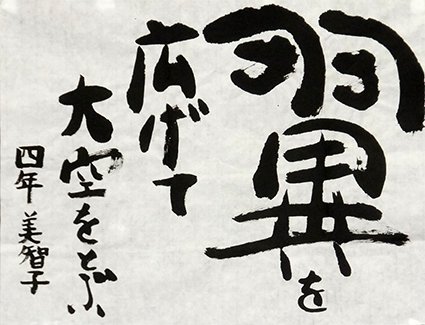 翼を
広げて
大空をとぶ
四年 美智子